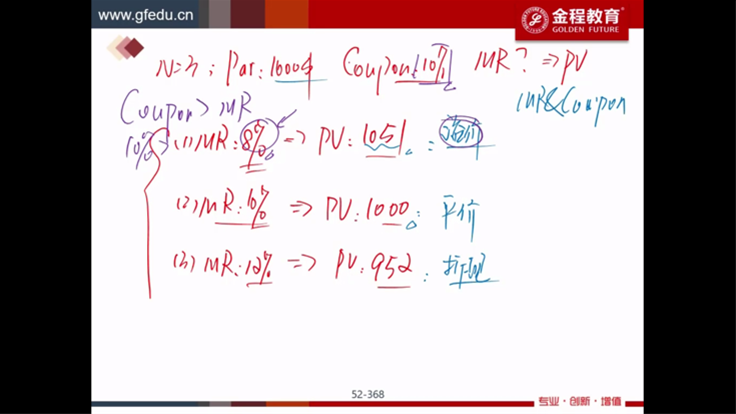 www.gfedu.cn
金程教育
GOLDEN FUTURE
N=3; Par: 1000 Coupon: 10% MR? => PV
MR & Coupon
Coupon > MR
10%
(1) MR: 8% => PV: 1051 : 溢价
(2) MR: 10% => PV: 1000 : 平价
(3) MR: 12% => PV: 952 : 折现
52-368
专业·创新·增值